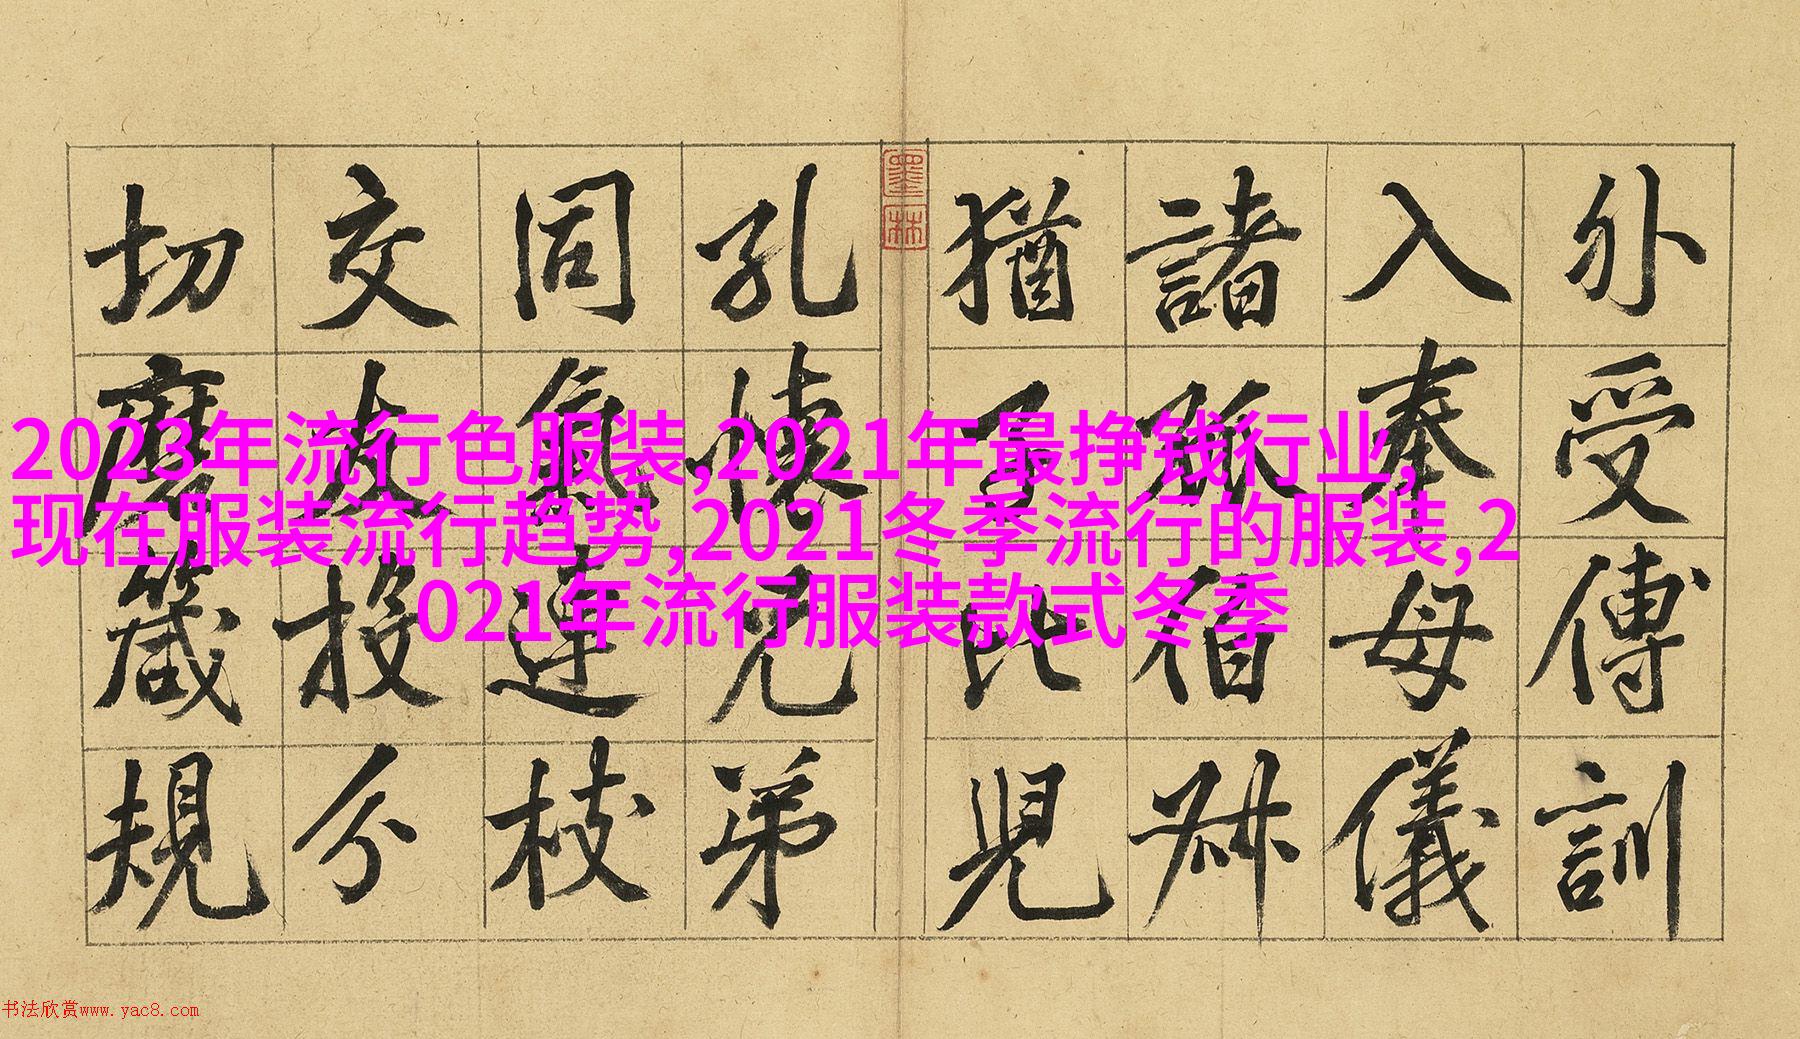 外受傅訓
入奉母儀
諸姑伯叔
猶子比兒
孔懷兄弟
同氣連枝
交友投分
切磨箴規
墨林
2023年流行色服装,2021年最挣钱行业,
现在服装流行趋势,2021冬季流行的服装,2
021年流行服装款式冬季
书法欣赏www.yac8.com